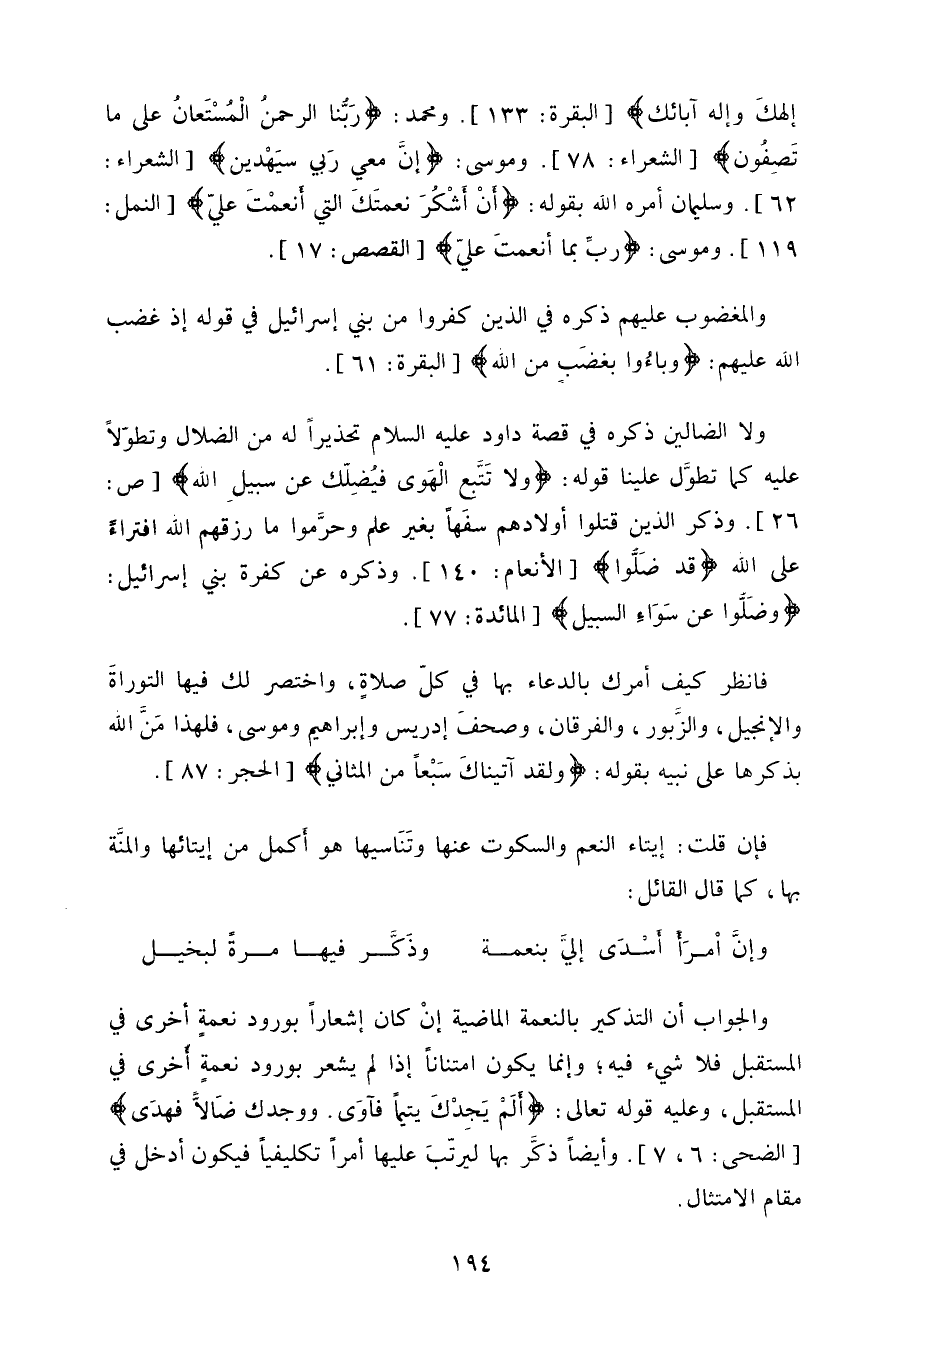 إلهكَ وإله آبائك﴾ [البقرة: ١٣٣]. ومحمد: ﴿رَبُّنا الرحمنُ الْمُسْتَعانُ على ما
تَصِفُون﴾ [الشعراء: ٧٨]. وموسى: ﴿إنَّ معي رَبي سيَهْدين﴾ [الشعراء:
٦٢]. وسليمان أمره الله بقوله: ﴿أَنْ أَشْكُرَ نعمتَكَ التي أَنعمْتَ عليّ﴾ [النمل:
١١٩]. وموسى: ﴿ربِّ بما أنعمتَ عليّ﴾ [القصص: ١٧].
والمغضوب عليهم ذكره في الذين كفروا من بني إسرائيل في قوله إذ غضب
الله عليهم: ﴿وباءُوا بغضَبٍ من الله﴾ [البقرة: ٦١].
ولا الضالين ذكره في قصة داود عليه السلام تحذيراً له من الضلال وتطوّلاً
عليه كما تطوَّل علينا قوله: ﴿ولا تَتَّبِعِ الْهَوى فيُضِلّك عن سبيلِ الله﴾ [ص:
٢٦]. وذكر الذين قتلوا أولادهم سفَهاً بغير علم وحرَّموا ما رزقهم الله افتراءً
على الله ﴿قد ضَلَّوا﴾ [الأنعام: ١٤٠]. وذكره عن كفرة بني إسرائيل:
﴿وضَلَّوا عن سَوَاءِ السبيل﴾ [المائدة: ٧٧].
فانظر كيف أمرك بالدعاء بها في كلّ صلاةٍ، واختصر لك فيها التوراةَ
والإنجيل، والزَّبور، والفرقان، وصحفَ إدريس وإبراهيم وموسى، فلهذا مَنَّ الله
بذكرها على نبيه بقوله: ﴿ولقد آتيناكَ سَبْعاً من المثاني﴾ [الحجر: ٨٧].
فإن قلت: إيتاء النعم والسكوت عنها وتَنَاسيها هو أكمل من إيتائها والمنَّة
بها، كما قال القائل:
وإنَّ امْرَأً أَسْدَى إليَّ بنعمة وذَكَّر فيها مرةً لبخيل
والجواب أن التذكير بالنعمة الماضية إنْ كان إشعاراً بورود نعمةٍ أخرى في
المستقبل فلا شيء فيه؛ وإنما يكون امتناناً إذا لم يشعر بورود نعمةٍ أُخرى في
المستقبل، وعليه قوله تعالى: ﴿أَلَمْ يَجِدْكَ يتيماً فآوَى. ووجدك ضَالاًّ فهدَى﴾
[الضحى: ٦، ٧]. وأيضاً ذكَّر بها ليرتّبَ عليها أمراً تكليفياً فيكون أدخل في
مقام الامتثال.
١٩٤